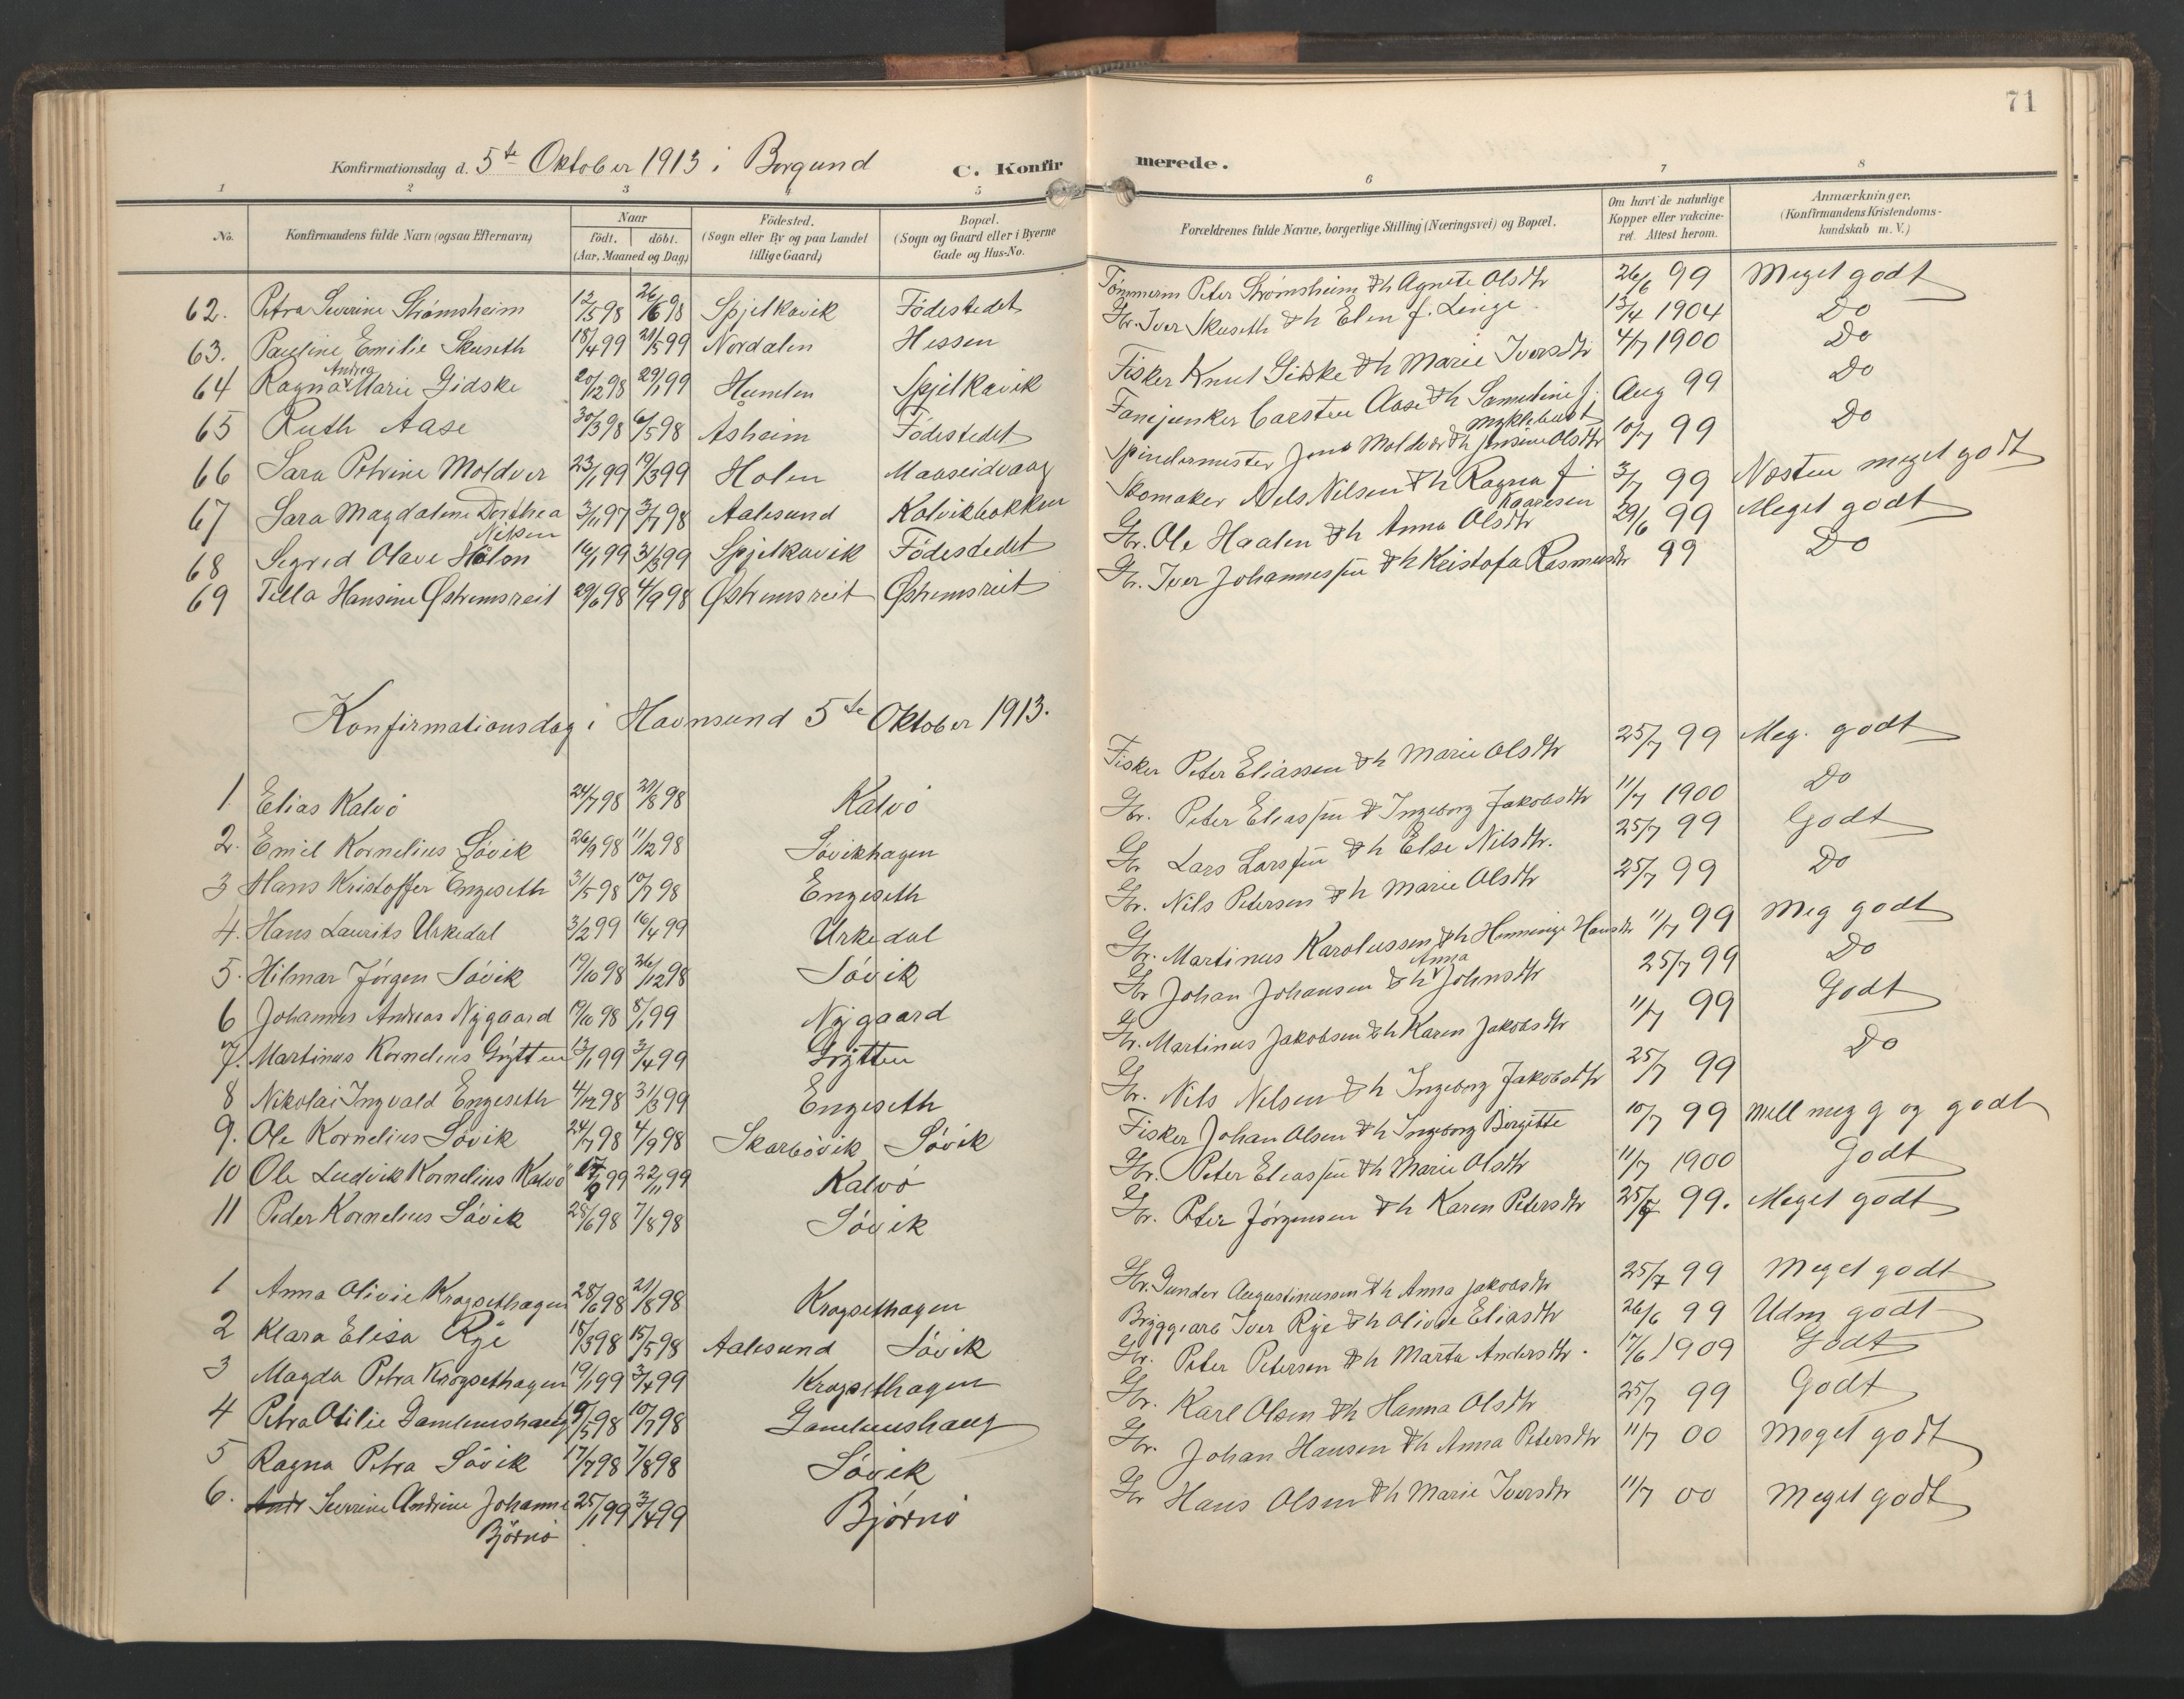 71
Konfirmationsdag d. 5te Oktober 1913 i Borgund C. Konfirmerede.
1 2 3 4 5 6 7 8
No. Konfirmandens fulde Navn (ogsaa Efternavn) Naar födt. döbt. (Aar, Maaned og Dag) Födested. (Sogn eller By og paa Landet tillige Gaard) Bopæl. (Sogn og Gaard eller i Byerne Gade og Hus-No. Forældrenes fulde Navne, borgerlige Stilling (Næringsvei) og Bopæl. Om havt de naturlige Kopper eller vakcineret. Attest herom. Anmærkninger. (Konfirmandens Kristendomskundskab m. V.)
62. Petra Severine Strømsheim 12/5 98 26/6 98 Spjelkavik Fødestedet Tømmerm Peter Strømsheim & h Agnete Olsdtr 26/6 99 Meget godt
63. Pauline Emilie Skuseth 18/4 99 21/5 99 Nordalen Hessen Gbr. Iver Skuseth & h Elen f. Linge 13/4 1904 Do
64 Ragna Andrea Marie Gidske 20/12 98 29/1 99 Humlen Spjelkavik Fisker Knut Gidske & h Marie Iversdtr 4/7 1900 Do
65 Ruth Aase 30/3 98 6/5 98 Åsheim Fødestedet Fanejunker Carsten Aase & h Samueline f. Myklebust Aug 99 Do
66 Sara Petrine Moldver 23/1 99 19/3 99 Holen Maaseidvaag Spindemester Jens Moldvær & h Jensine Olsdtr 10/7 99 Do
67 Sara Magdalene Dorthea Nilsen 3/11 97 3/7 98 Aalesund Kalvikbakken Skomaker Nils Nilsen & h Ragna f. Kaaresen 3/7 99 Næsten meget godt
68 Sigrid Olave Hålen 16/1 99 31/3 99 Spjelkavik Fødestedet Gbr. Ole Haalen & h Anna Olsdtr 29/6 99 Meget godt
69 Tella Hansine Østremsreit 29/6 98 4/9 98 Østremsreit Østremsreit Gbr. Iver Johannessen & h Kristofa Rasmusdtr 99 Do
Konfirmationsdag i Havnsund 5te Oktober 1913.
1 Elias Kalvö 24/7 98 21/8 98 Kalvö Fisker Peter Eliassen & h Marie Olsdtr 25/7 99 Meg. godt
2. Emil Kornelius Sövik 26/9 98 11/12 98 Sövikhagen Gbr. Peter Eliassen & Ingeborg Jakobsdtr 11/7 1900 Do
3 Hans Kristoffer Engeseth 31/5 98 10/7 98 Engeseth Gbr Lars Larssen & h Else Nilsdtr. 25/7 99 Godt
4. Hans Laurits Urkedal 3/2 99 16/4 99 Urkedal Gbr. Nils Petersen & h Marie Olsdtr 25/7 99 Do
5. Hilmar Jörgen Sövik 19/10 98 26/12 98 Sövik Gbr. Martinus Karolussen & h Henninge Hansdtr 11/7 99 Meg godt
6 Johannes Andreas Nygaard 19/10 98 8/1 99 Nygaard Gbr Johan Johansen & h Anna Johnsdtr 25/7 99 Do
7. Martinus Kornelius Grytten 13/1 99 3/4 99 Grytten Gbr. Martinus Jakobsen & h Karen Jakobsdtr 11/7 99 Godt
8 Nikolai Ingvald Engeseth 4/12 98 31/3 99 Engeseth Gbr. Nils Nilsen & h Ingeborg Jakobsdtr 25/7 99 Do
9. Ole Kornelius Sövik 24/7 98 4/9 98 Skarbövik Sövik Fisker Johan Olsen & h Ingeborg Bergitte 10/7 99 Mell meg g og godt
10 Ole Ludvik Kornelius Kalvö 99 22/11 99 Kalvö Gbr. Peter Eliassen & h Marie Olsdtr 11/7 1900 Godt
11 Peder Kornelius Sövik 28/6 98 7/8 98 Sövik Gbr. Peter Jörgensen & h Karen Petersdtr 25/7 99. Meget godt
1 Anna Olivie Krogsethagen 28/6 98 21/8 98 Krogsethagen Gbr. Gunder Augustinussen & h Anna Jakobsdtr 25/7 99 Meget godt
2 Klara Elisa Rye 18/3 98 15/5 98 Aalesund Sövik Bryggearb Iver Rye & h Olivde Eliasdtr 26/6 99 Udm godt
3 Magda Petra Krogsethagen 19/1 99 3/4 99 Krogsethagen Gbr. Peter Petersen & h Marta Andersdtr. 17/6 1909 Godt
4 Petra Otilie Gamlemshaug 19/5 98 10/7 98 Gamlemshaug Gbr. Karl Olsen & h Hanna Olsdtr 25/7 99 Godt
5 Ragna Petra Sövik 17/7 98 7/8 98 Sövik Gbr. Johan Hansen & h Anna Petersdtr 11/7 00 Meget godt
6. Severine Andrine Johanne Björnö 25/1 99 3/4 99 Björnö Gbr Hans Olsen & h Marie Iversdtr 11/7 00 Meget godt